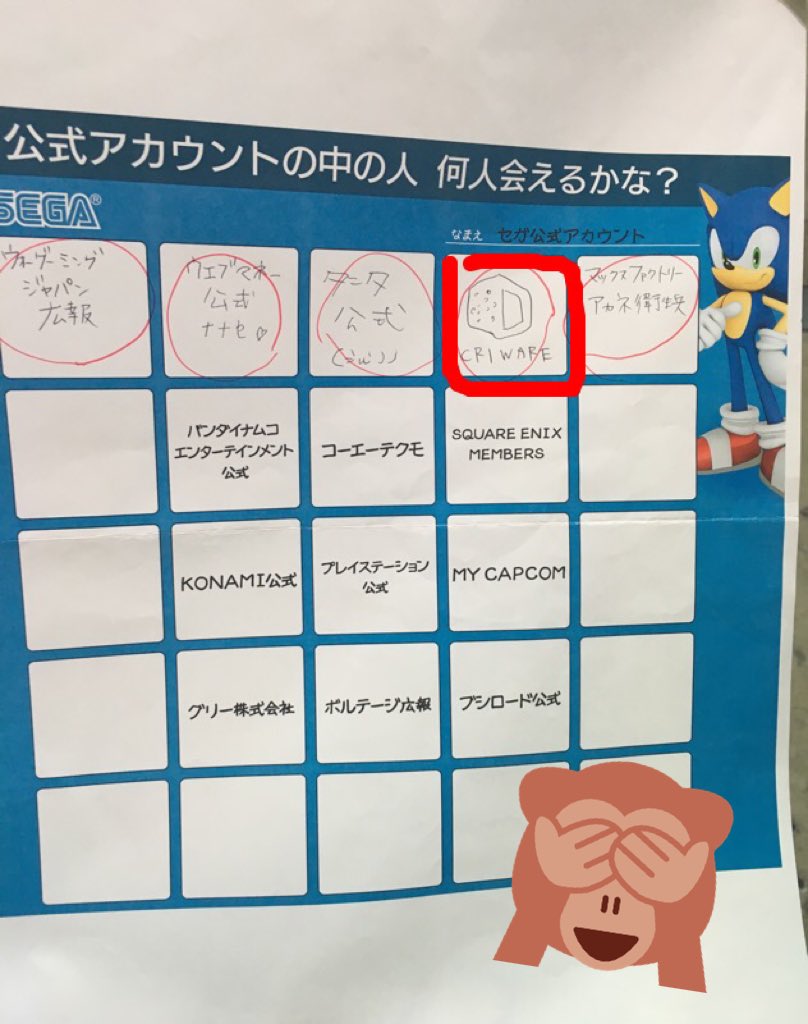 公式アカウントの中の人 何人会えるかな？
SEGA®
なまえ セガ公式アカウント
ウォーゲーミング
ジャパン
広報
ウェブマネー
公式
ナナセ♡
タニタ
公式
CRIWARE
マックスファクトリー
アカネ衛生兵
バンダイナムコ
エンターテインメント
公式
コーエーテクモ
SQUARE ENIX
MEMBERS
KONAMI公式
プレイステーション
公式
MY CAPCOM
グリー株式会社
ボルテージ広報
ブシロード公式